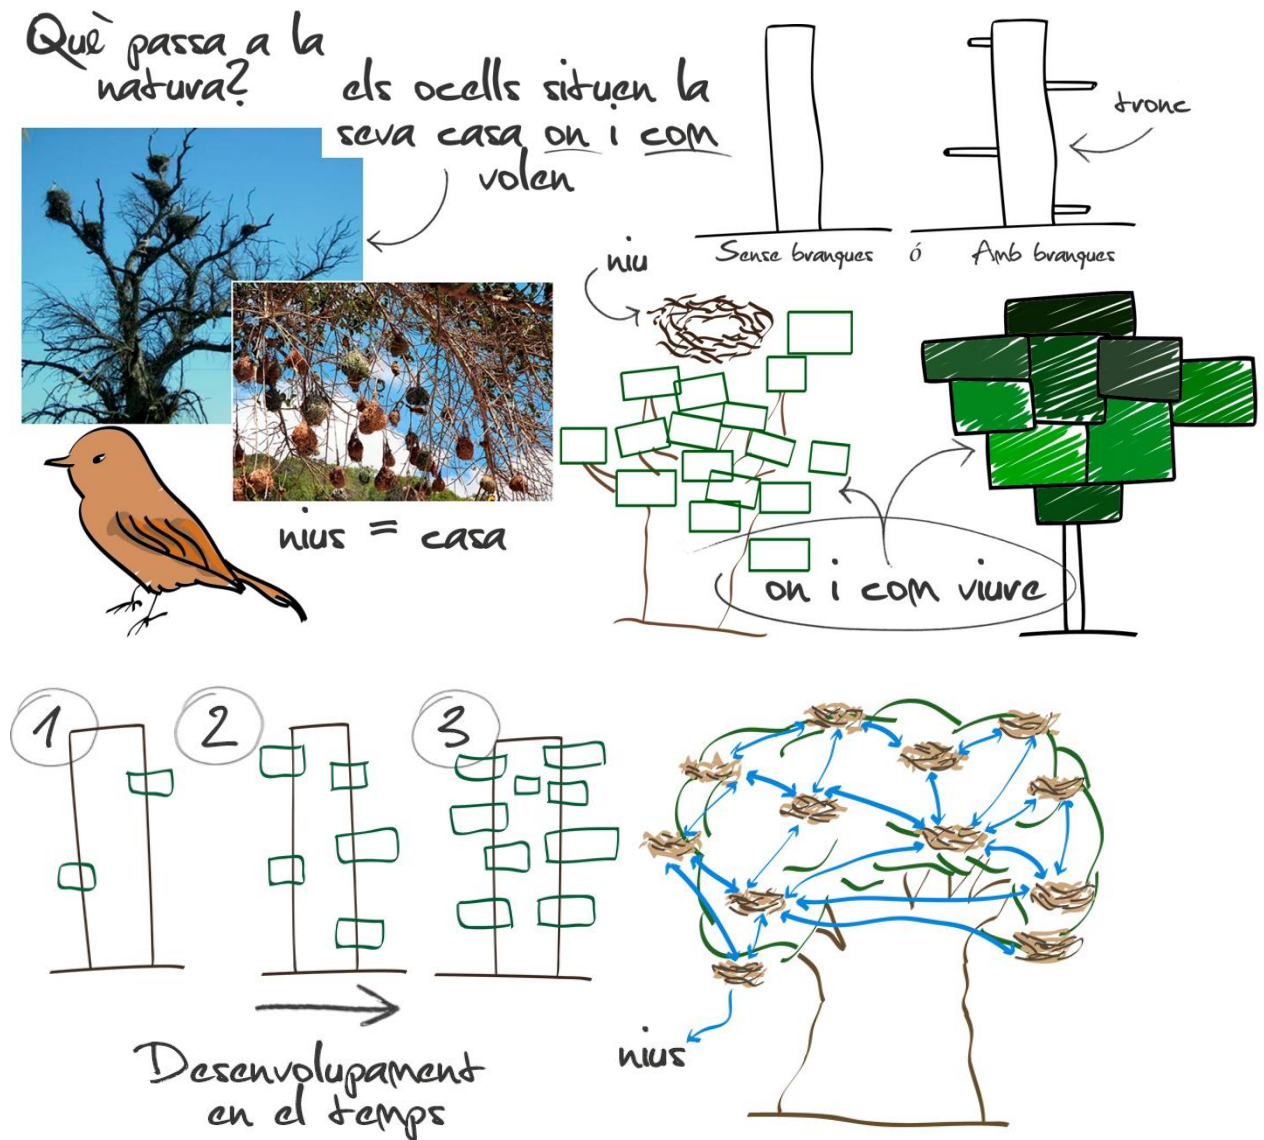 Què passa a la
natura?
els ocells situen la
seva casa on i com
volen
tronc
Sense branques ó Amb branques
niu
nius = casa
on i com viure
1 2 3
nius
Desenvolupament
en el temps